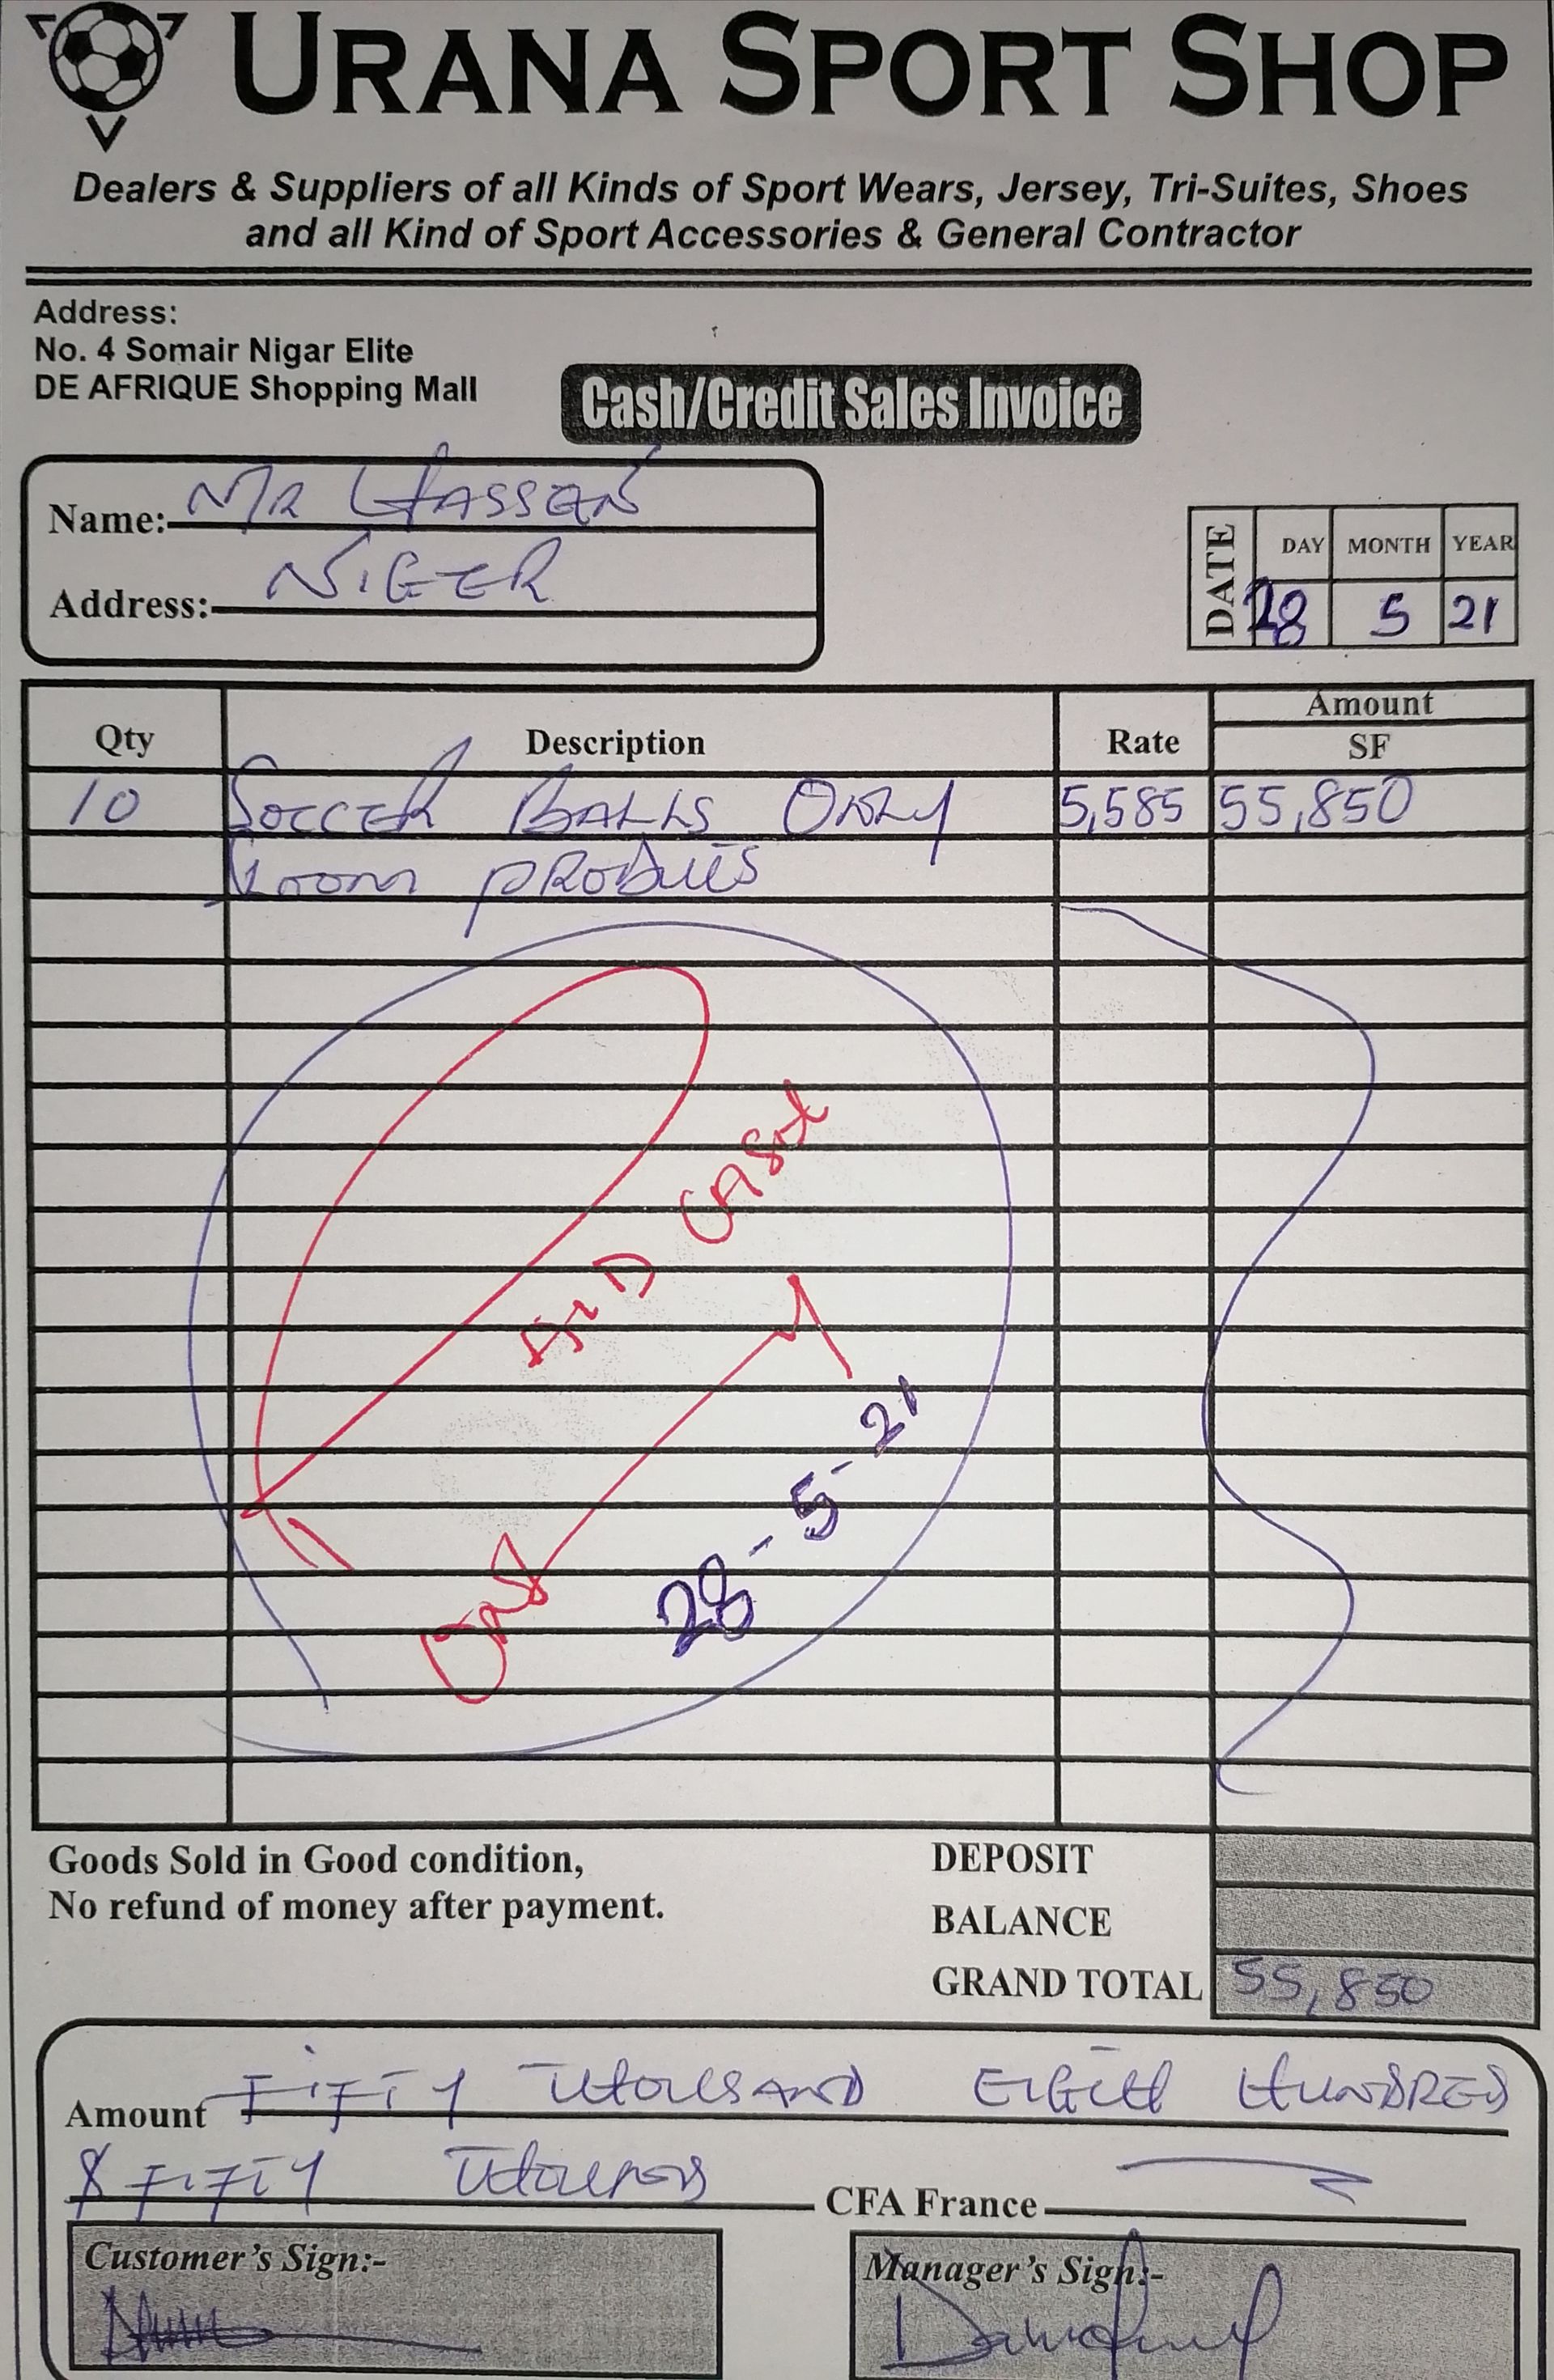 URANA SPORT SHOP
Dealers & Suppliers of all Kinds of Sport Wears, Jersey, Tri-Suites, Shoes
and all Kind of Sport Accessories & General Contractor
Address:
No. 4 Somair Nigar Elite
DE AFRIQUE Shopping Mall
Cash/Credit Sales Invoice
Name: MR HASSAN
Address: NIGER
DATE DAY MONTH YEAR
28 5 21
Qty Description Rate Amount
SF
10 SOCCER BALLS ONLY 5,585 55,850
CASH
ONLY
28-5-21
Goods Sold in Good condition,
No refund of money after payment.
DEPOSIT
BALANCE
GRAND TOTAL 55,850
Amount FIFTY THOUSAND EIGTH HUNDRED
& FIFTY CFA France
Customer's Sign:-
Manager's Sign:-